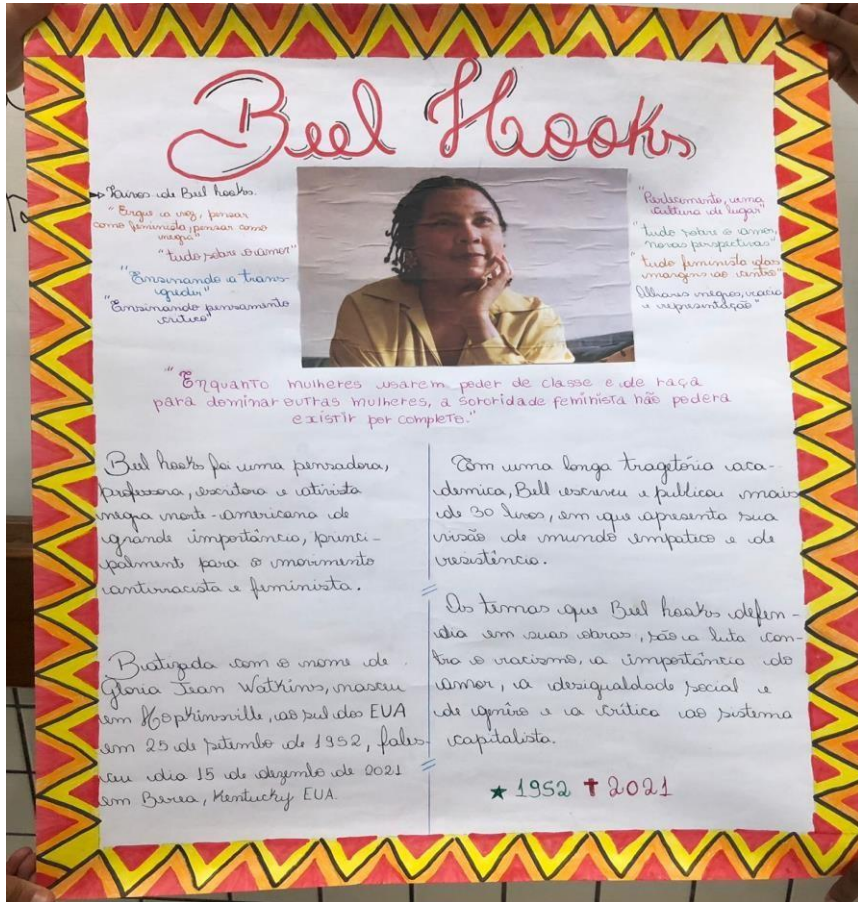 Beel Hooks
Livros de Beel hooks.
"Ergue a voz, pensar
como feminista, pensar como
negra"
"tudo sobre o amor"
"Ensinando a trans-
gredir"
"Ensinando pensamento
crítico"
"Pertecimento, uma
cultura de lugar"
"tudo sobre o amor,
novas perspectivas"
"tudo feminista das
margens ao centro"
Olhares negros, racia
e representação"
"Enquanto mulheres usarem poder de classe e de raça
para dominar outras mulheres, a sororidade feminista não podera
existir por completo."
Beel hooks foi uma pensadora,
professora, escritora e ativista
negra norte-americana de
grande importância, princi-
palment para o movimento
antirracista e feminista.
Batizada com o nome de
Gloria Jean Watkins, nasceu
em Hopkinsville, ao sul dos EUA
em 25 de setembo de 1952, fales-
ceu dia 15 de dezembo de 2021
em Berea, Kentucky EUA.
Com uma longa tragetória aca-
demica, Bell escreveu e publicou mais
de 30 livos, em que apresenta sua
visão de mundo empatico e de
resistência.
Os temas que Beel hooks defen-
dia em suas obras, são a luta con-
tra o racismo, a importância do
amor, a desigualdade social e
de genêro e a crítica ao sistema
capitalista.
★ 1952 ✝ 2021